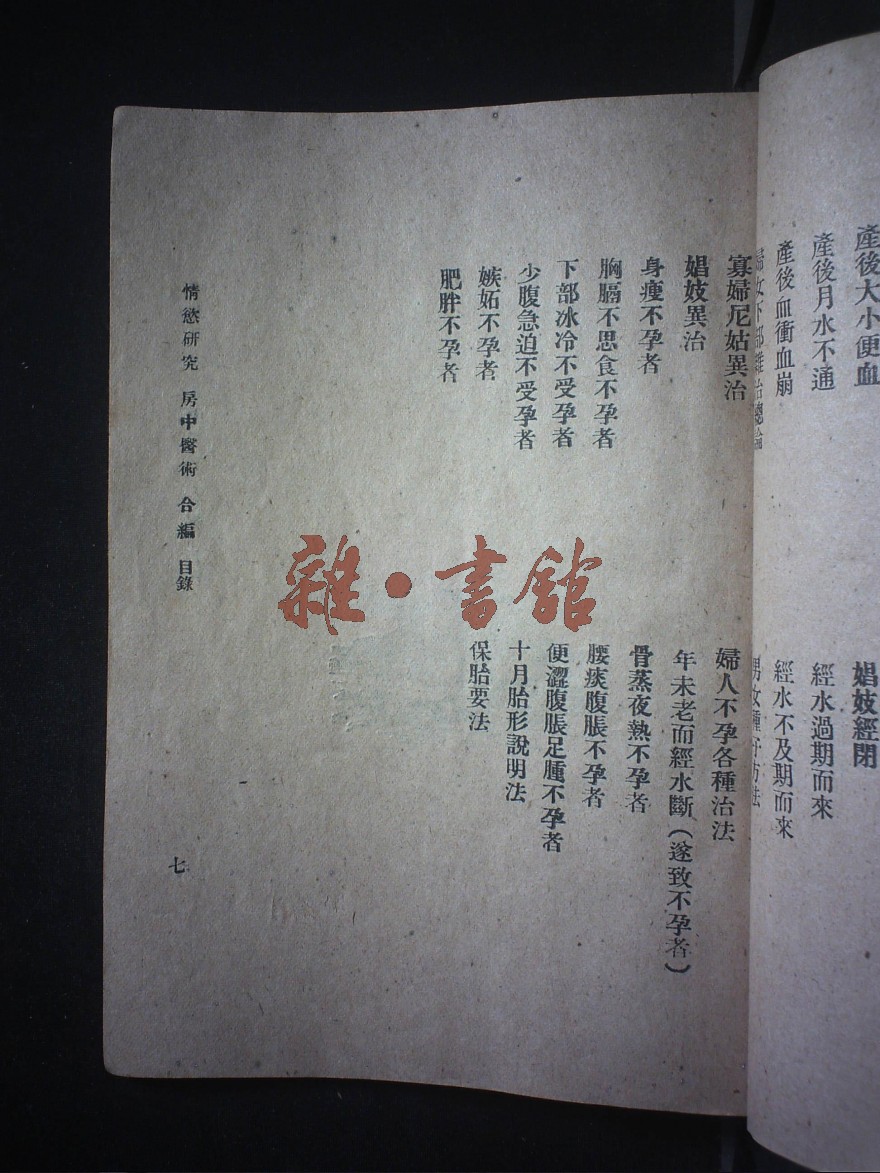 產後大小便血
產後月水不通
產後血衝血崩
婦女下部雜治總論
寡婦尼姑異治
娼妓異治
身瘦不孕者
胸膈不思食不孕者
下部冰冷不受孕者
少腹急迫不受孕者
嫉妬不孕者
肥胖不孕者
娼妓經閉
經水過期而來
經水不及期而來
男女種子方法
婦人不孕各種治法
年未老而經水斷(遂致不孕者)
骨蒸夜熱不孕者
腰痰腹脹不孕者
便澀腹脹足腫不孕者
十月胎形說明法
保胎要法
情慾研究 房中醫術 合編 目錄
七
雜·書館